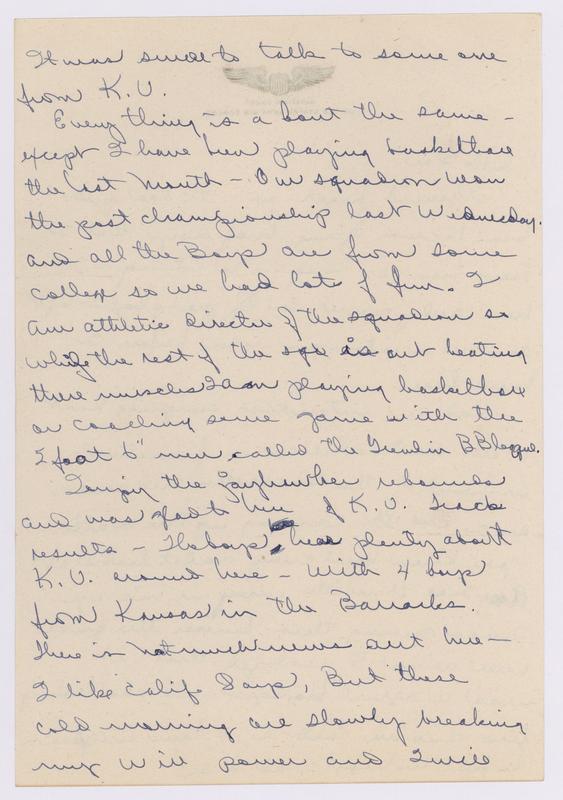 It was swell to talk to some one
from K.U.
Everything is about the same -
except I have been playing basketball
the last month - Our squadron won
the post championship last Wednesday.
and all the Boys are from some
college so we had lots of fun. I
am athletic director of the squadron so
while the rest of the is out beating
there muscles I am playing basketball
or coaching some game with the
5 foot 6" men called the Gremlin BB league.
I enjoy the Jayhawker rebounds
and was glad to hear of K.U. Track
results - The boys hear plenty about
K.U. around here - with 4 boys
from Kansas in the Barracks.
There is not much news out here -
I like Calif Days, But these
cold morning are slowly breaking
my will power and I will